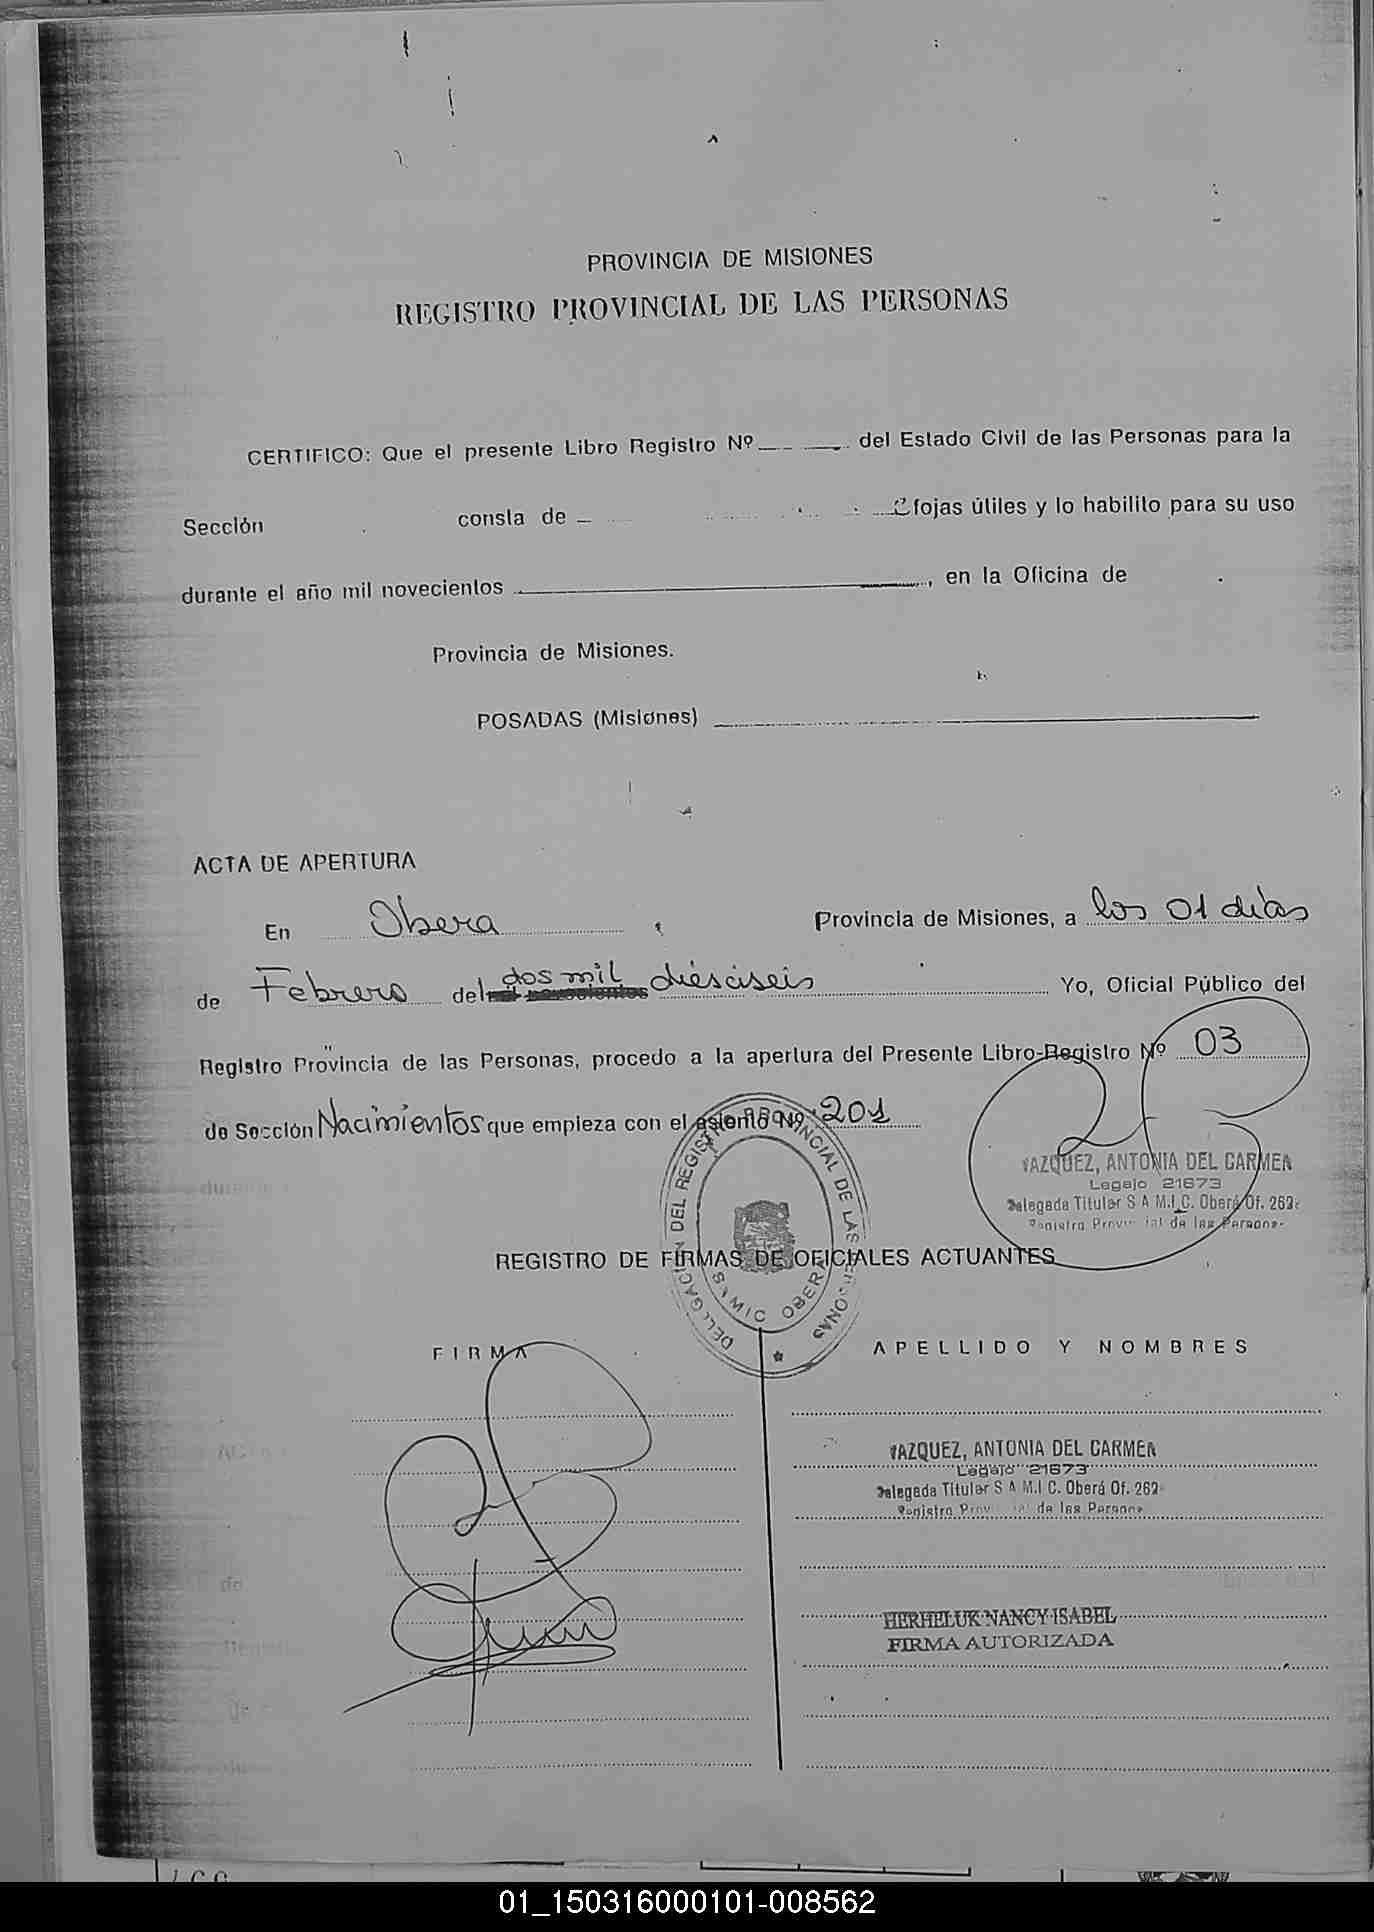 PROVINCIA DE MISIONES
REGISTRO PROVINCIAL DE LAS PERSONAS
CERTIFICO: Que el presente Libro Registro Nº del Estado Civil de las Personas para la
Sección consta de fojas útiles y lo habilito para su uso
durante el año mil novecientos , en la Oficina de
Provincia de Misiones.
POSADAS (Misiones)
ACTA DE APERTURA
En Obera Provincia de Misiones, a los 01 días
de Febrero del dos mil diésciseis Yo, Oficial Público del
Registro Provincia de las Personas, procedo a la apertura del Presente Libro-Registro Nº 03
de Sección Nacimientos que empieza con el asiento Nº 201
VAZQUEZ, ANTONIA DEL CARMEN
Legajo 21673
Delegada Titular S A M.I.C. Oberá Of. 262
Registro Provincial de las Personas
DELEGACION DEL REGISTRO PROVINCIAL DE LAS PERSONAS
SAMIC OBERA
REGISTRO DE FIRMAS DE OFICIALES ACTUANTES
FIRMA APELLIDO Y NOMBRES
VAZQUEZ, ANTONIA DEL CARMEN
Legajo 21673
Delegada Titular S A M.I C. Oberá Of. 262
Registro Provincial de las Personas
HERHELUK NANCY ISABEL
FIRMA AUTORIZADA
01_150316000101-008562